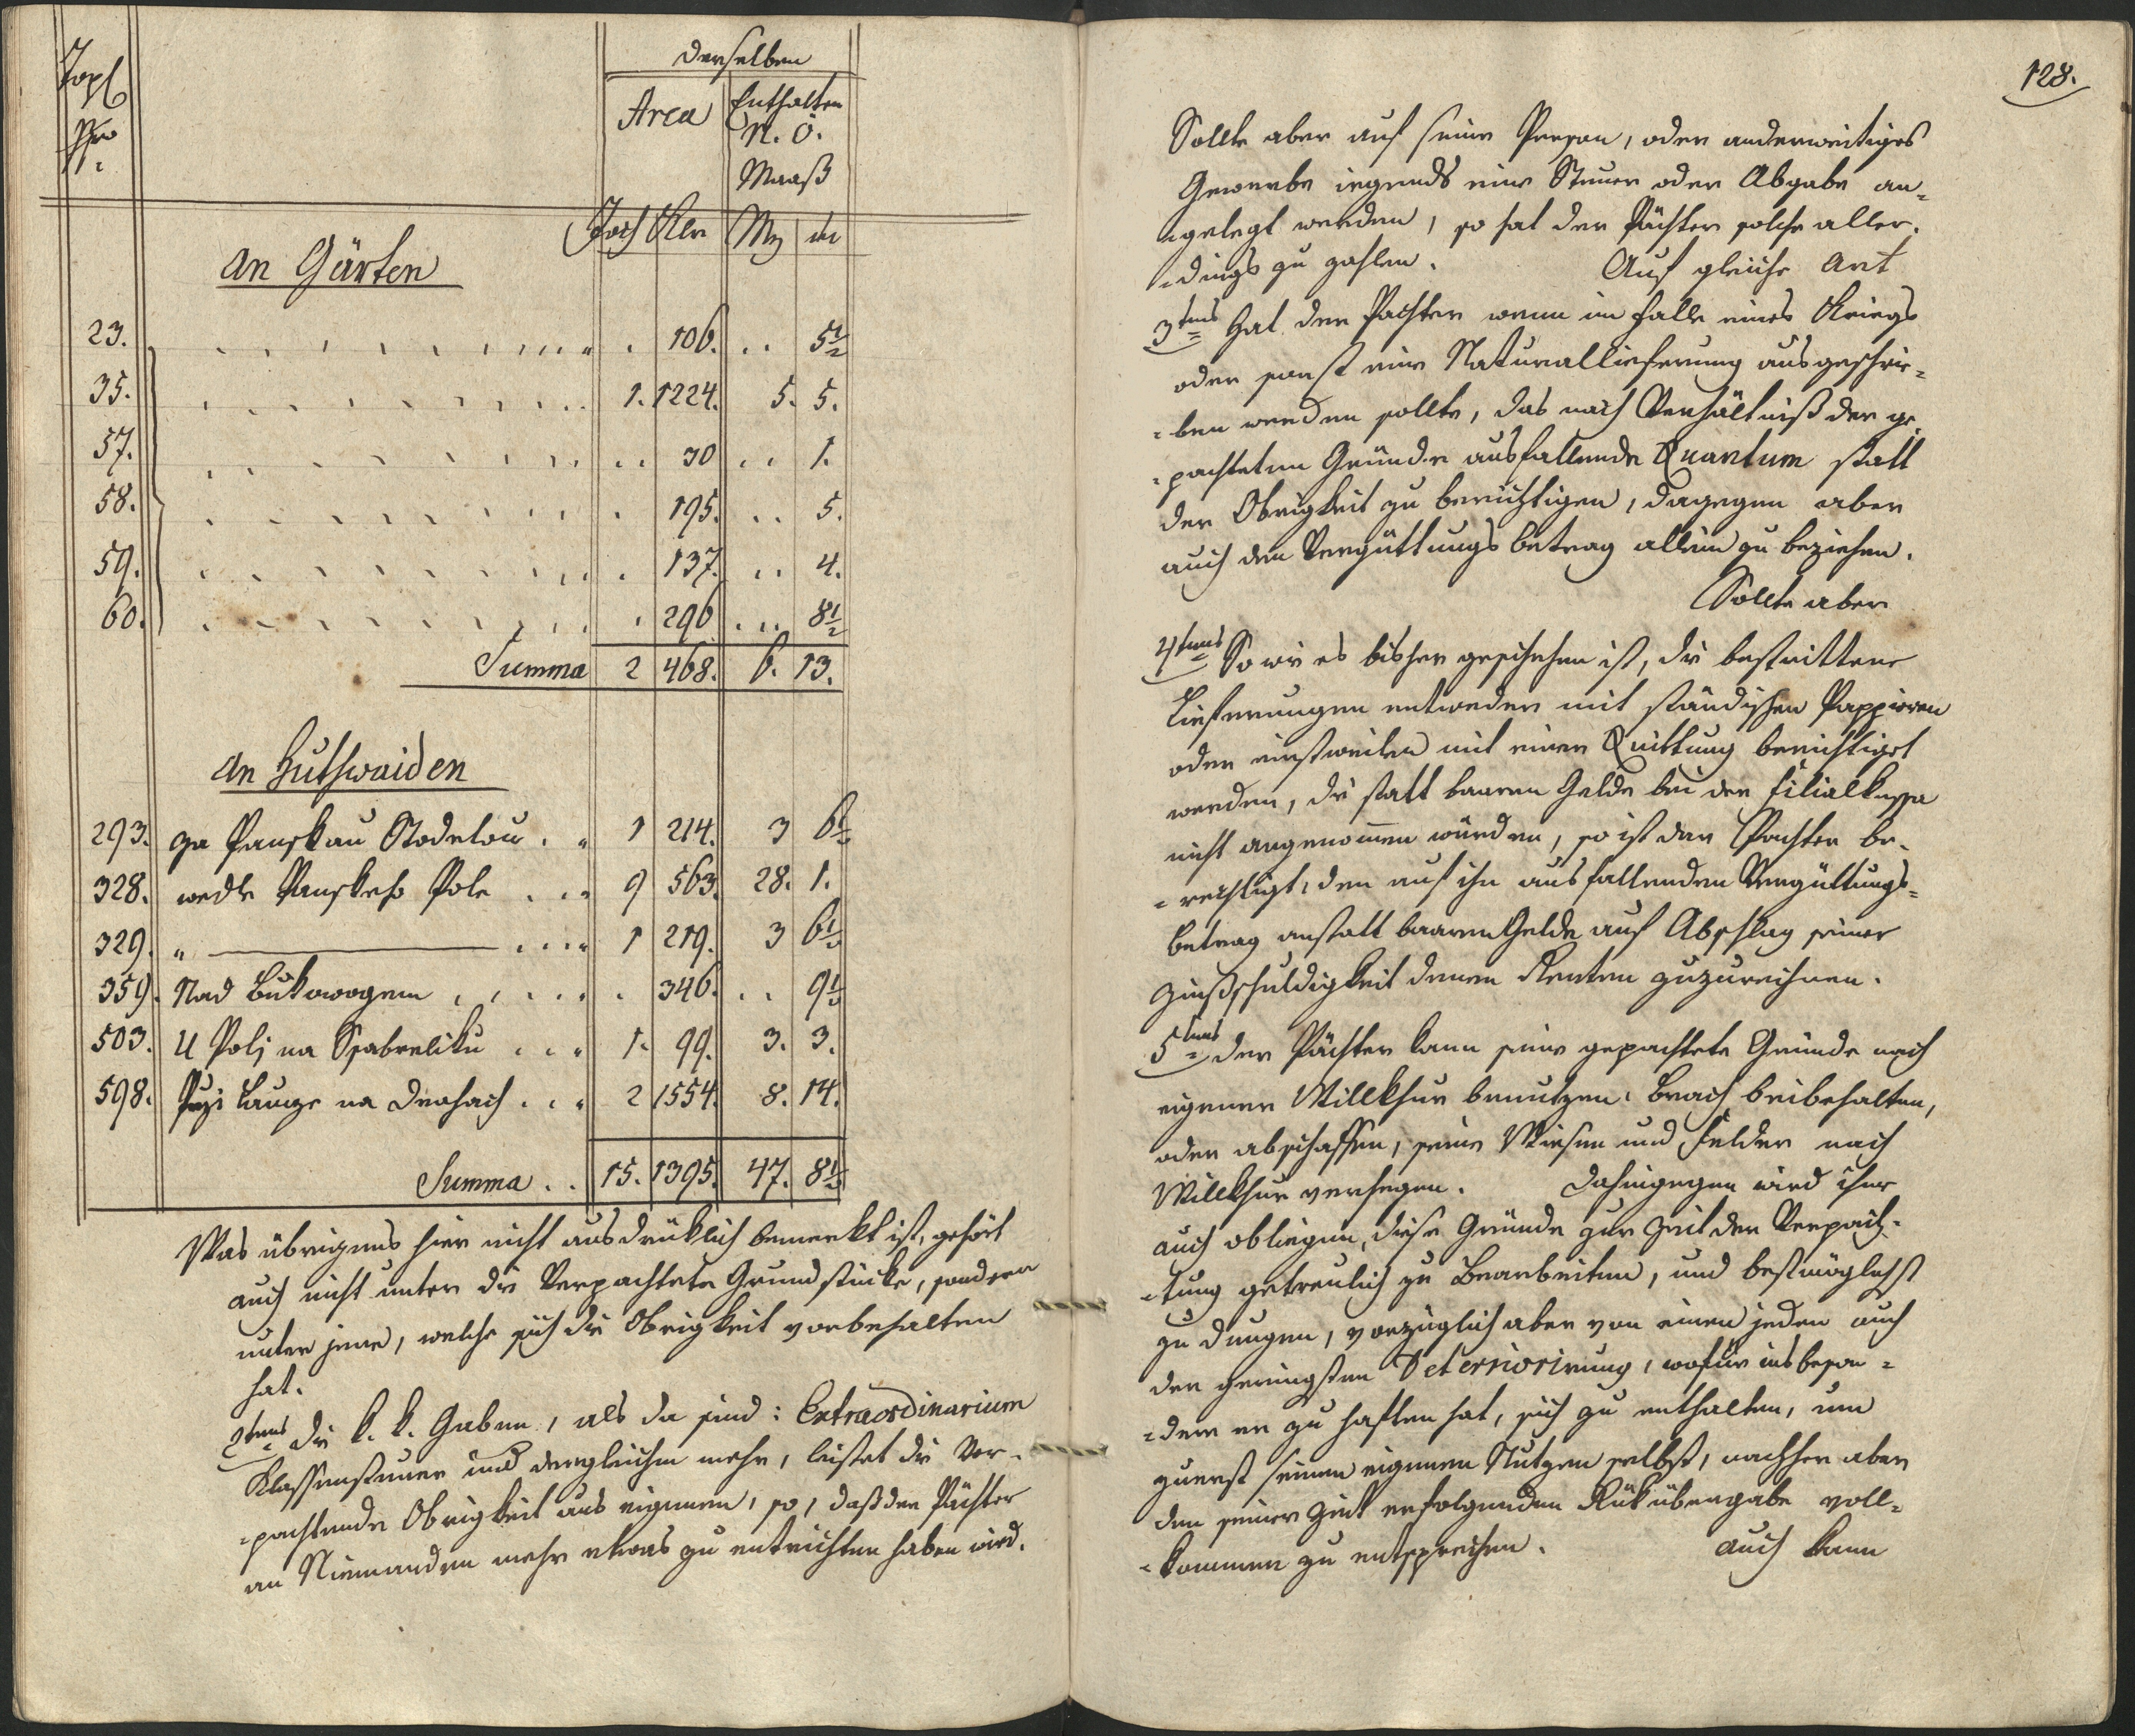 Topl
Nro
derselben
Area
Enthalten
N. Ö.
Maaß
Joch Klr Mz m
An Gärten
23. . . 106. . . 5 1/2
35. . . 1. 1224. 5. 5.
57. . . 30 . . 1.
58. . . 195. . . 5.
59. . . 137. . . 4.
60. . . 296 . . . 8 1/2
Summa 2 468. 6. 13.
An Huthwaiden
293. za Panskau Stodolou . 1 214. 3 6 1/2
328. wedle Panskeho Pole . . 9 563. 28. 1.
329. " ——— . . . 1 219. 3 6 1/2
359. Nad Bukowogem . . . . 346. . . 9 1/2
503. U Polj na Skabreliku . . . 1. 99. 3. 3.
598. Przi Lauze na Drahach . . . 2 1554. 8. 14.
Summa . . 15. 1395. 47. 8 1/2
Was übrigens hier nicht ausdrüklich bemerkt ist, gehört
auch nicht unter die Verpachtete Grundstücke, sondern
unter jene, welche sich die Obrigkeit vorbehalten
hat.
2tens Die k. k. Gaben, als da sind: Extraordinarium
Klassensteuer und dergleichen mehr, leistet die Ver-
-pachtende Obrigkeit aus eigenen, so, daß der Pächter
an Niemanden mehr etwas zu entrichten haben wird.
128.
Sollte aber auf seine Person, oder anderweitiges
Gewerbe irgends eine Steuer oder Abgabe an-
-gelegt werden, so hat der Pächter solche aller-
-dings zu zahlen. Auf gleiche Art
3tens Hat der Pachter wenn im Falle eines Kriegs
oder sonst eine Naturallieferung ausgeschrie-
-ben werden sollte, das nach Verhältniß der ge-
-pachteten Gründe ausfallende Quantum statt
der Obrigkeit zu berichtigen, dagegen aber
auch den Vergüttungsbetrag allein zu beziehen.
Sollte aber
4tens So wie es bisher geschehen ist, die bestrittene
Lieferungen entweder mit ständischen Pappieren
oder einstweilen mit einer Quittung berichtiget
werden, die statt baaren Gelde bei der Filialkassa
nicht angenommen würden, so ist der Pachter be-
-rechtigt, den auf ihn ausfallenden Vergüttungs-
betrag anstatt baaren Gelde auf Abschlag seiner
Zinßschuldigkeit denen Renten zuzurechnen.
5tens Der Pächter kann seine gepachtete Gründe nach
eigener Willkhur benutzen, Brach beibehalten,
oder abschaffen, seine Wiesen und Felder nach
Willkhur verhegen. Dahingegen wird ihme
auch obliegen, diese Gründe zur Zeit der Verpach-
-tung getreulich zu Bearbeiten, und bestmöglichst
zu dungen, vorzüglich aber von einen jeden auch
der geringsten Deterriorirung, wofür insbeson-
-dere er zu haften hat, sich zu enthalten, um
zuerst seinen eigenen Nutzen selbst, nachher aber
den seiner Zeit erfolgenden Rükübergabe voll-
-kommen zu entsprechen. Auch kann